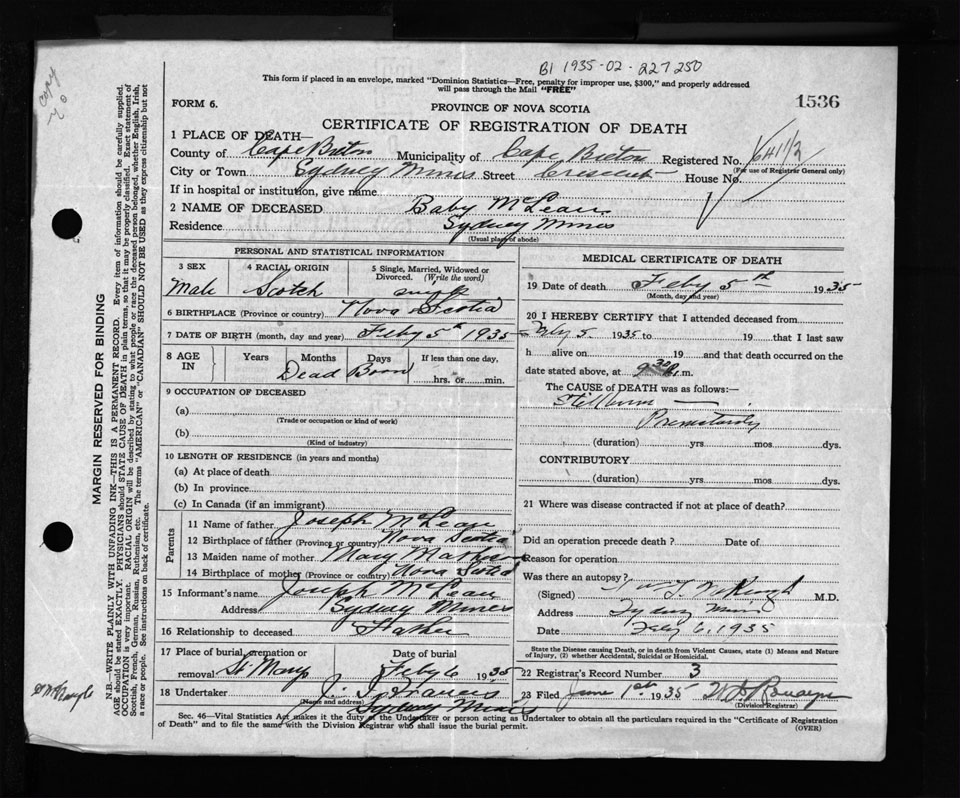 B1 1935-02-227250
This form if placed in an envelope, marked "Dominion Statistics—Free, penalty for improper use, $300," and properly addressed
will pass through the Mail "FREE"
1536
FORM 6.
PROVINCE OF NOVA SCOTIA
CERTIFICATE OF REGISTRATION OF DEATH
1 PLACE OF DEATH—
County of Cape Breton Municipality of Cape Breton Registered No.
(For use of Registrar General only)
City or Town Sydney Mines Street Crescent House No.
If in hospital or institution, give name
2 NAME OF DECEASED Baby McLean
Residence Sydney Mines
(Usual place of abode)
PERSONAL AND STATISTICAL INFORMATION
3 SEX 4 RACIAL ORIGIN 5 Single, Married, Widowed or
Divorced. (Write the word)
Male Scotch single
6 BIRTHPLACE (Province or country) Nova Scotia
7 DATE OF BIRTH (month, day and year) Feby 5th 1935
8 AGE IN Years Months Days If less than one day,
Dead Born hrs. or min.
9 OCCUPATION OF DECEASED
(a)
(Trade or occupation or kind of work)
(b)
(Kind of industry)
10 LENGTH OF RESIDENCE (in years and months)
(a) At place of death
(b) In province
(c) In Canada (if an immigrant)
Parents
11 Name of father Joseph McLean
12 Birthplace of father (Province or country) Nova Scotia
13 Maiden name of mother Mary
14 Birthplace of mother (Province or country) Nova Scotia
15 Informant's name Joseph McLean
Address Sydney Mines
16 Relationship to deceased Father
17 Place of burial, cremation or removal Date of burial
St Marys Feby 6 1935
18 Undertaker J. Francis
(Name and address)
Sydney Mines
MEDICAL CERTIFICATE OF DEATH
19 Date of death Feby 5th 1935
(Month, day and year)
20 I HEREBY CERTIFY that I attended deceased from
Feby 5 1935 to 19 that I last saw
h alive on 19 and that death occurred on the
date stated above, at 9.30 P.m.
The CAUSE of DEATH was as follows:—
Stillborn
Prematurity
(duration) yrs mos dys.
CONTRIBUTORY
(duration) yrs mos dys.
21 Where was disease contracted if not at place of death?
Did an operation precede death? Date of
Reason for operation
Was there an autopsy?
(Signed) M.D.
Address Sydney Mines
Date Feby 6, 1935
State the Disease causing Death, or in death from Violent Causes, state (1) Means and Nature
of Injury, (2) whether Accidental, Suicidal or Homicidal.
22 Registrar's Record Number 3
23 Filed June 1st 1935
(Division Registrar)
Sec. 46—Vital Statistics Act makes it the duty of the Undertaker or person acting as Undertaker to obtain all the particulars required in the "Certificate of Registration
of Death" and to file the same with the Division Registrar who shall issue the burial permit. (OVER)
MARGIN RESERVED FOR BINDING
N.B.—WRITE PLAINLY WITH UNFADING INK—THIS IS A PERMANENT RECORD. Every item of information should be carefully supplied.
AGE should be stated EXACTLY. PHYSICIANS should STATE CAUSE OF DEATH in plain terms, so that it may be properly classified. Exact statement of
OCCUPATION is very important. RACIAL ORIGIN will be described by stating to what people or race the deceased person belonged, whether English, Irish,
Scottish, French, German, Russian, Ruthenian, etc. The terms "AMERICAN" or "CANADIAN" SHOULD NOT BE USED as they express citizenship but not
a race or people. See instructions on back of certificate.
copy